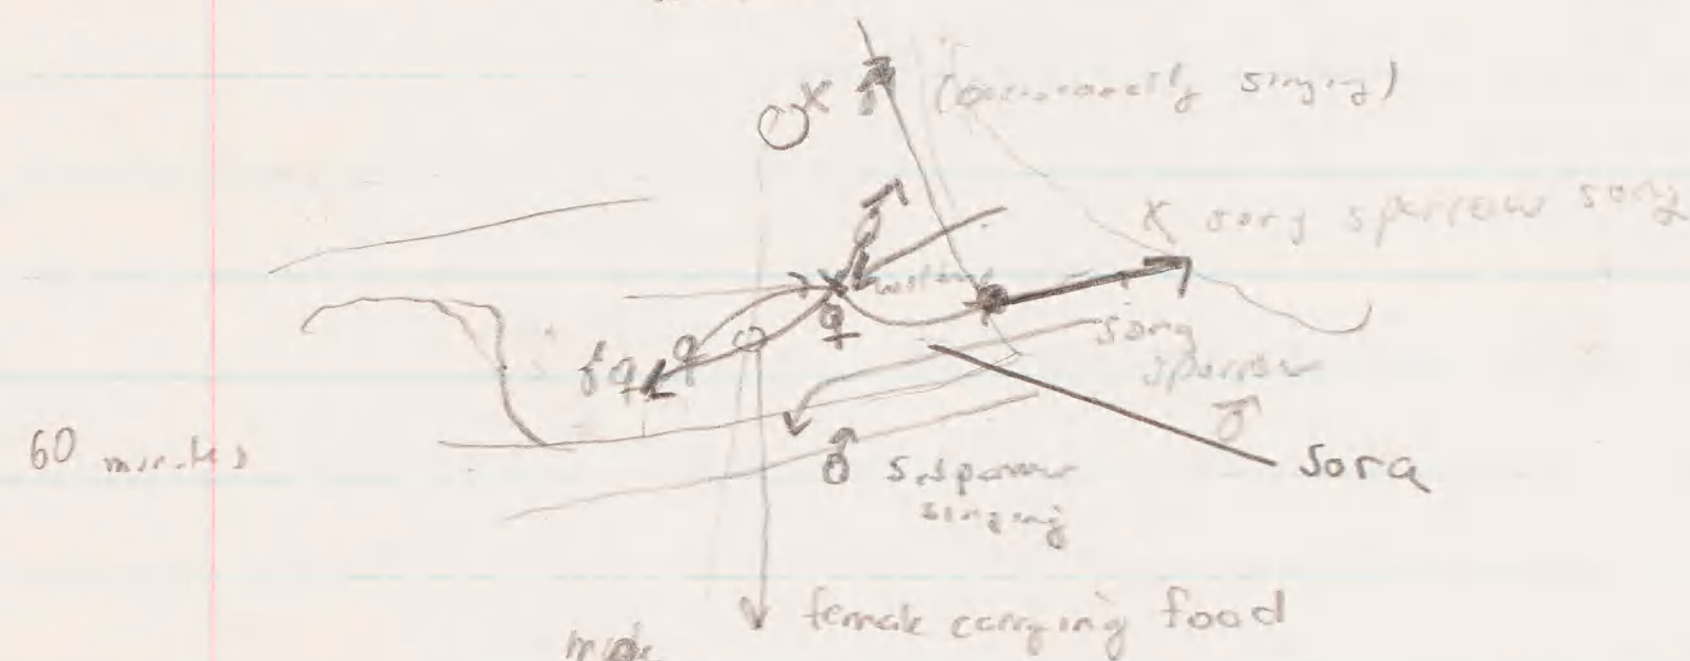 (occasionally singing)
x song sparrow song
song
sparrow
♂
60 minutes
♂ s. sparrow
singing
Sora
female carrying food
male